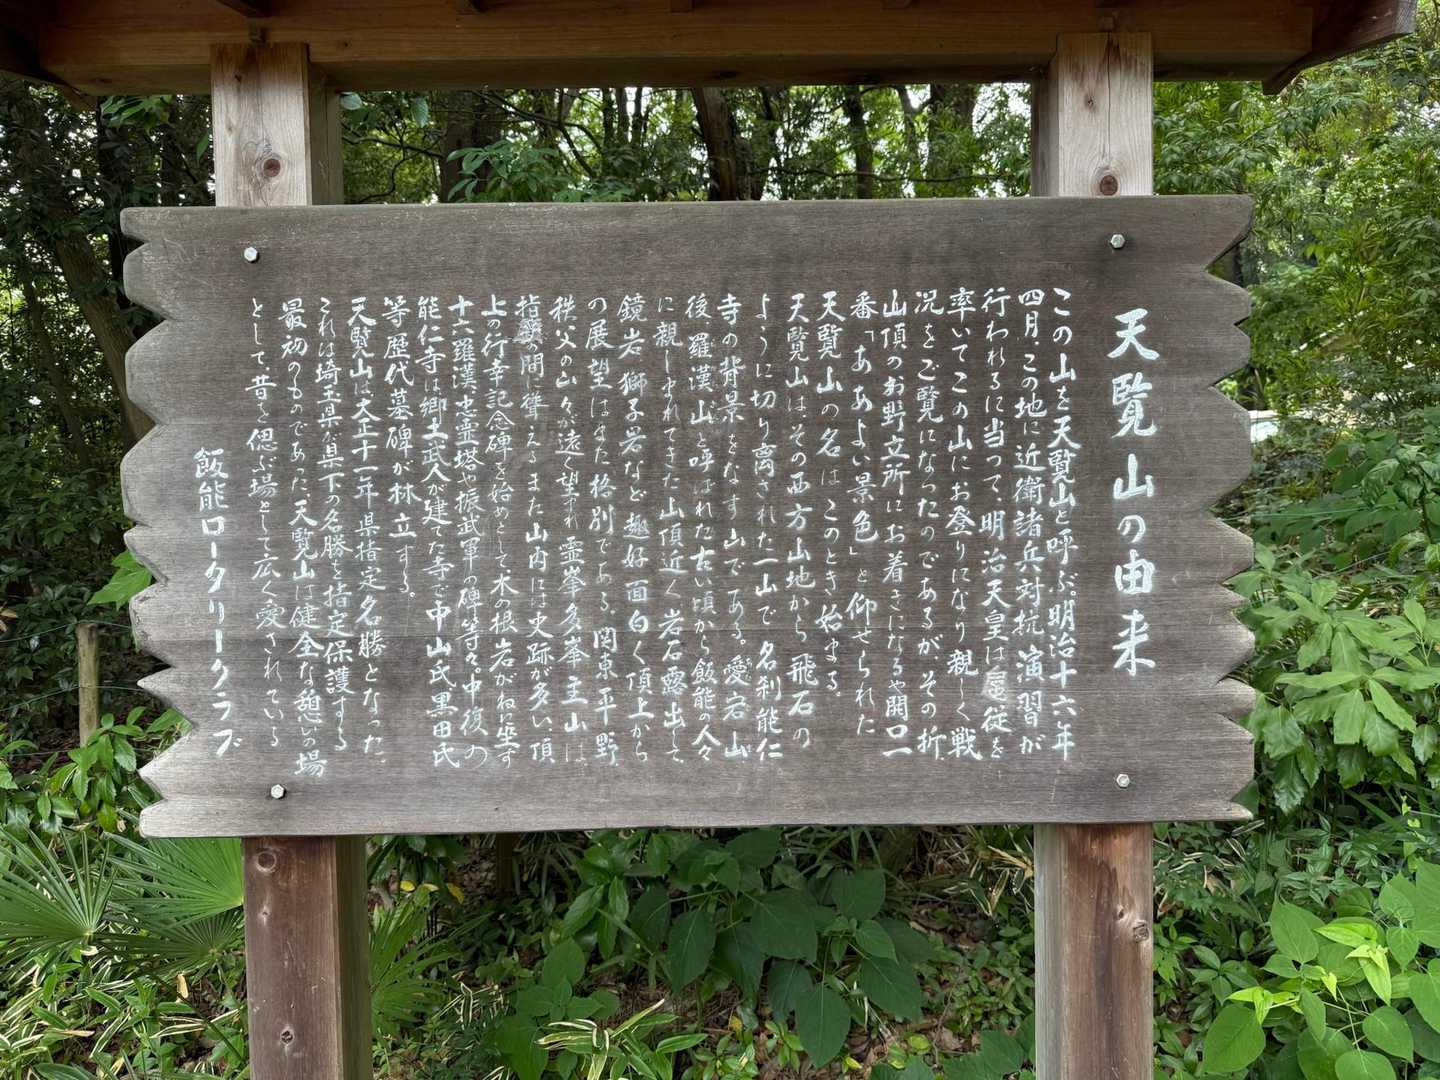 天覧山の由来
この山を天覧山と呼ぶ。明治十六年
四月、この地に近衛諸兵対抗演習が
行われるに当って、明治天皇は扈従を
率いてこの山にお登りになり親しく戦
況をご覧になったのであるが、その折、
山頂のお野立所にお着きになるや開口一
番「ああよい景色」と仰せられた
天覧山の名はこのとき始まる。
天覧山は、その西方山地から飛石の
ように切り離された一山で名刹能仁
寺の背景をなす山である。愛宕山
後羅漢山と呼ばれた古い頃から飯能の人々
に親しまれてきた山頂近く岩石露出して
鏡岩獅子岩など趣好面白く頂上から
の展望はまた格別である。関東平野、
秩父の山々が遠く望まれ霊峯多峯主山は、
指呼の間に聳えるまた山内には史跡が多い、頂
上の行幸記念碑を始めとして、木の根岩がねに坐す
十六羅漢、忠霊塔や振武軍の碑等々。中復の
能仁寺は郷土武人が建てた寺で中山氏、黒田氏
等歴代墓碑が林立する。
天覧山は大正十一年県指定名勝となった、
これは埼玉県が県下の名勝を指定保護する
最初のものであった、天覧山は健全な憩いの場
として、昔を偲ぶ場として広く愛されている
飯能ロータリークラブ